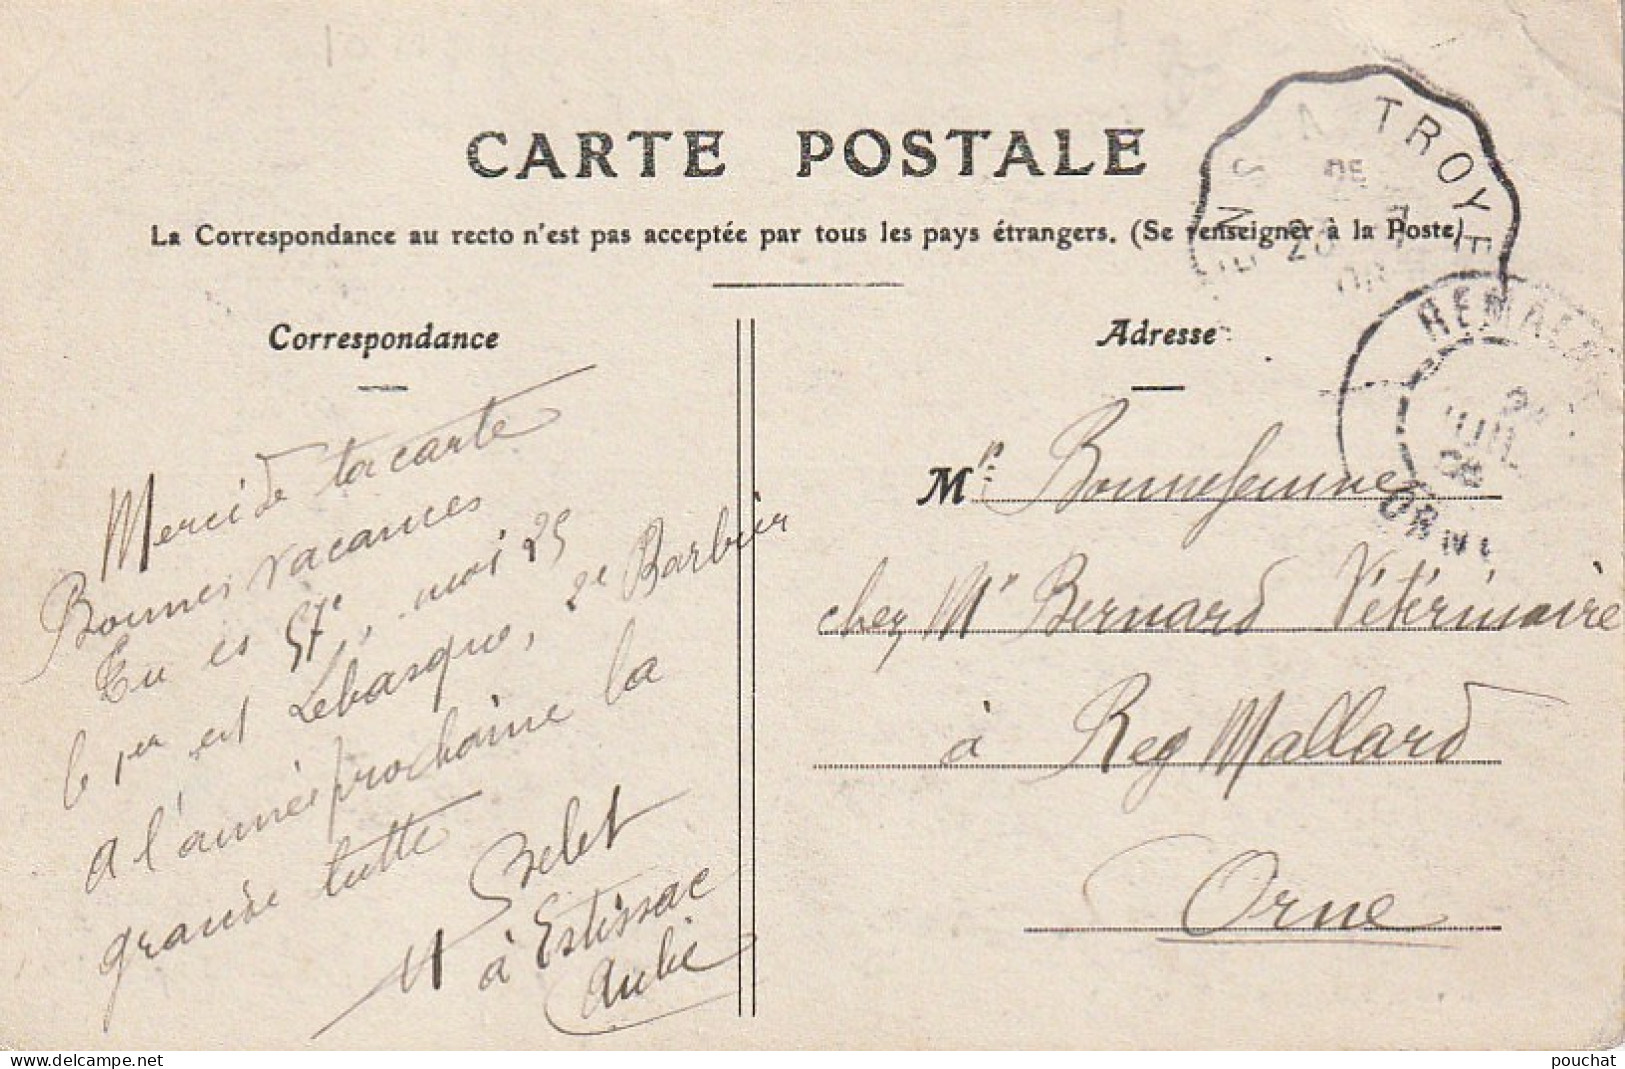 CARTE POSTALE
La Correspondance au recto n'est pas acceptée par tous les pays étrangers. (Se renseigner à la Poste)
Correspondance
Merci de ta carte
Bonnes vacances
Tu es 57e, moi 25
le 1er est Lebasque, 2e Barbier
A l'année prochaine la
grande lutte
M Brelet
à Estissac
Aube
Adresse
Mr Bonnefemme
chez Mr Bernard Vétérinaire
à Reg Mallard
Orne
SENS A TROYES
20
08
REMALARD
JUIL
08
ORNE
www.delcampe.net
pouchat